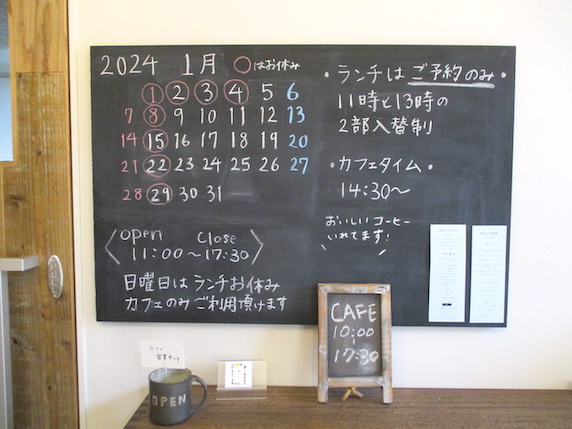 2024 1月 ○はお休み
1 2 3 4 5 6
7 8 9 10 11 12 13
14 15 16 17 18 19 20
21 22 23 24 25 26 27
28 29 30 31
open close
11:00~17:30
日曜日はランチお休み
カフェのみご利用頂けます
・ランチはご予約のみ・
11時と13時の
2部入替制
・カフェタイム・
14:30~
おいしいコーヒー
いれてます!
CAFE
10:00
17:30
カフェ
OPEN